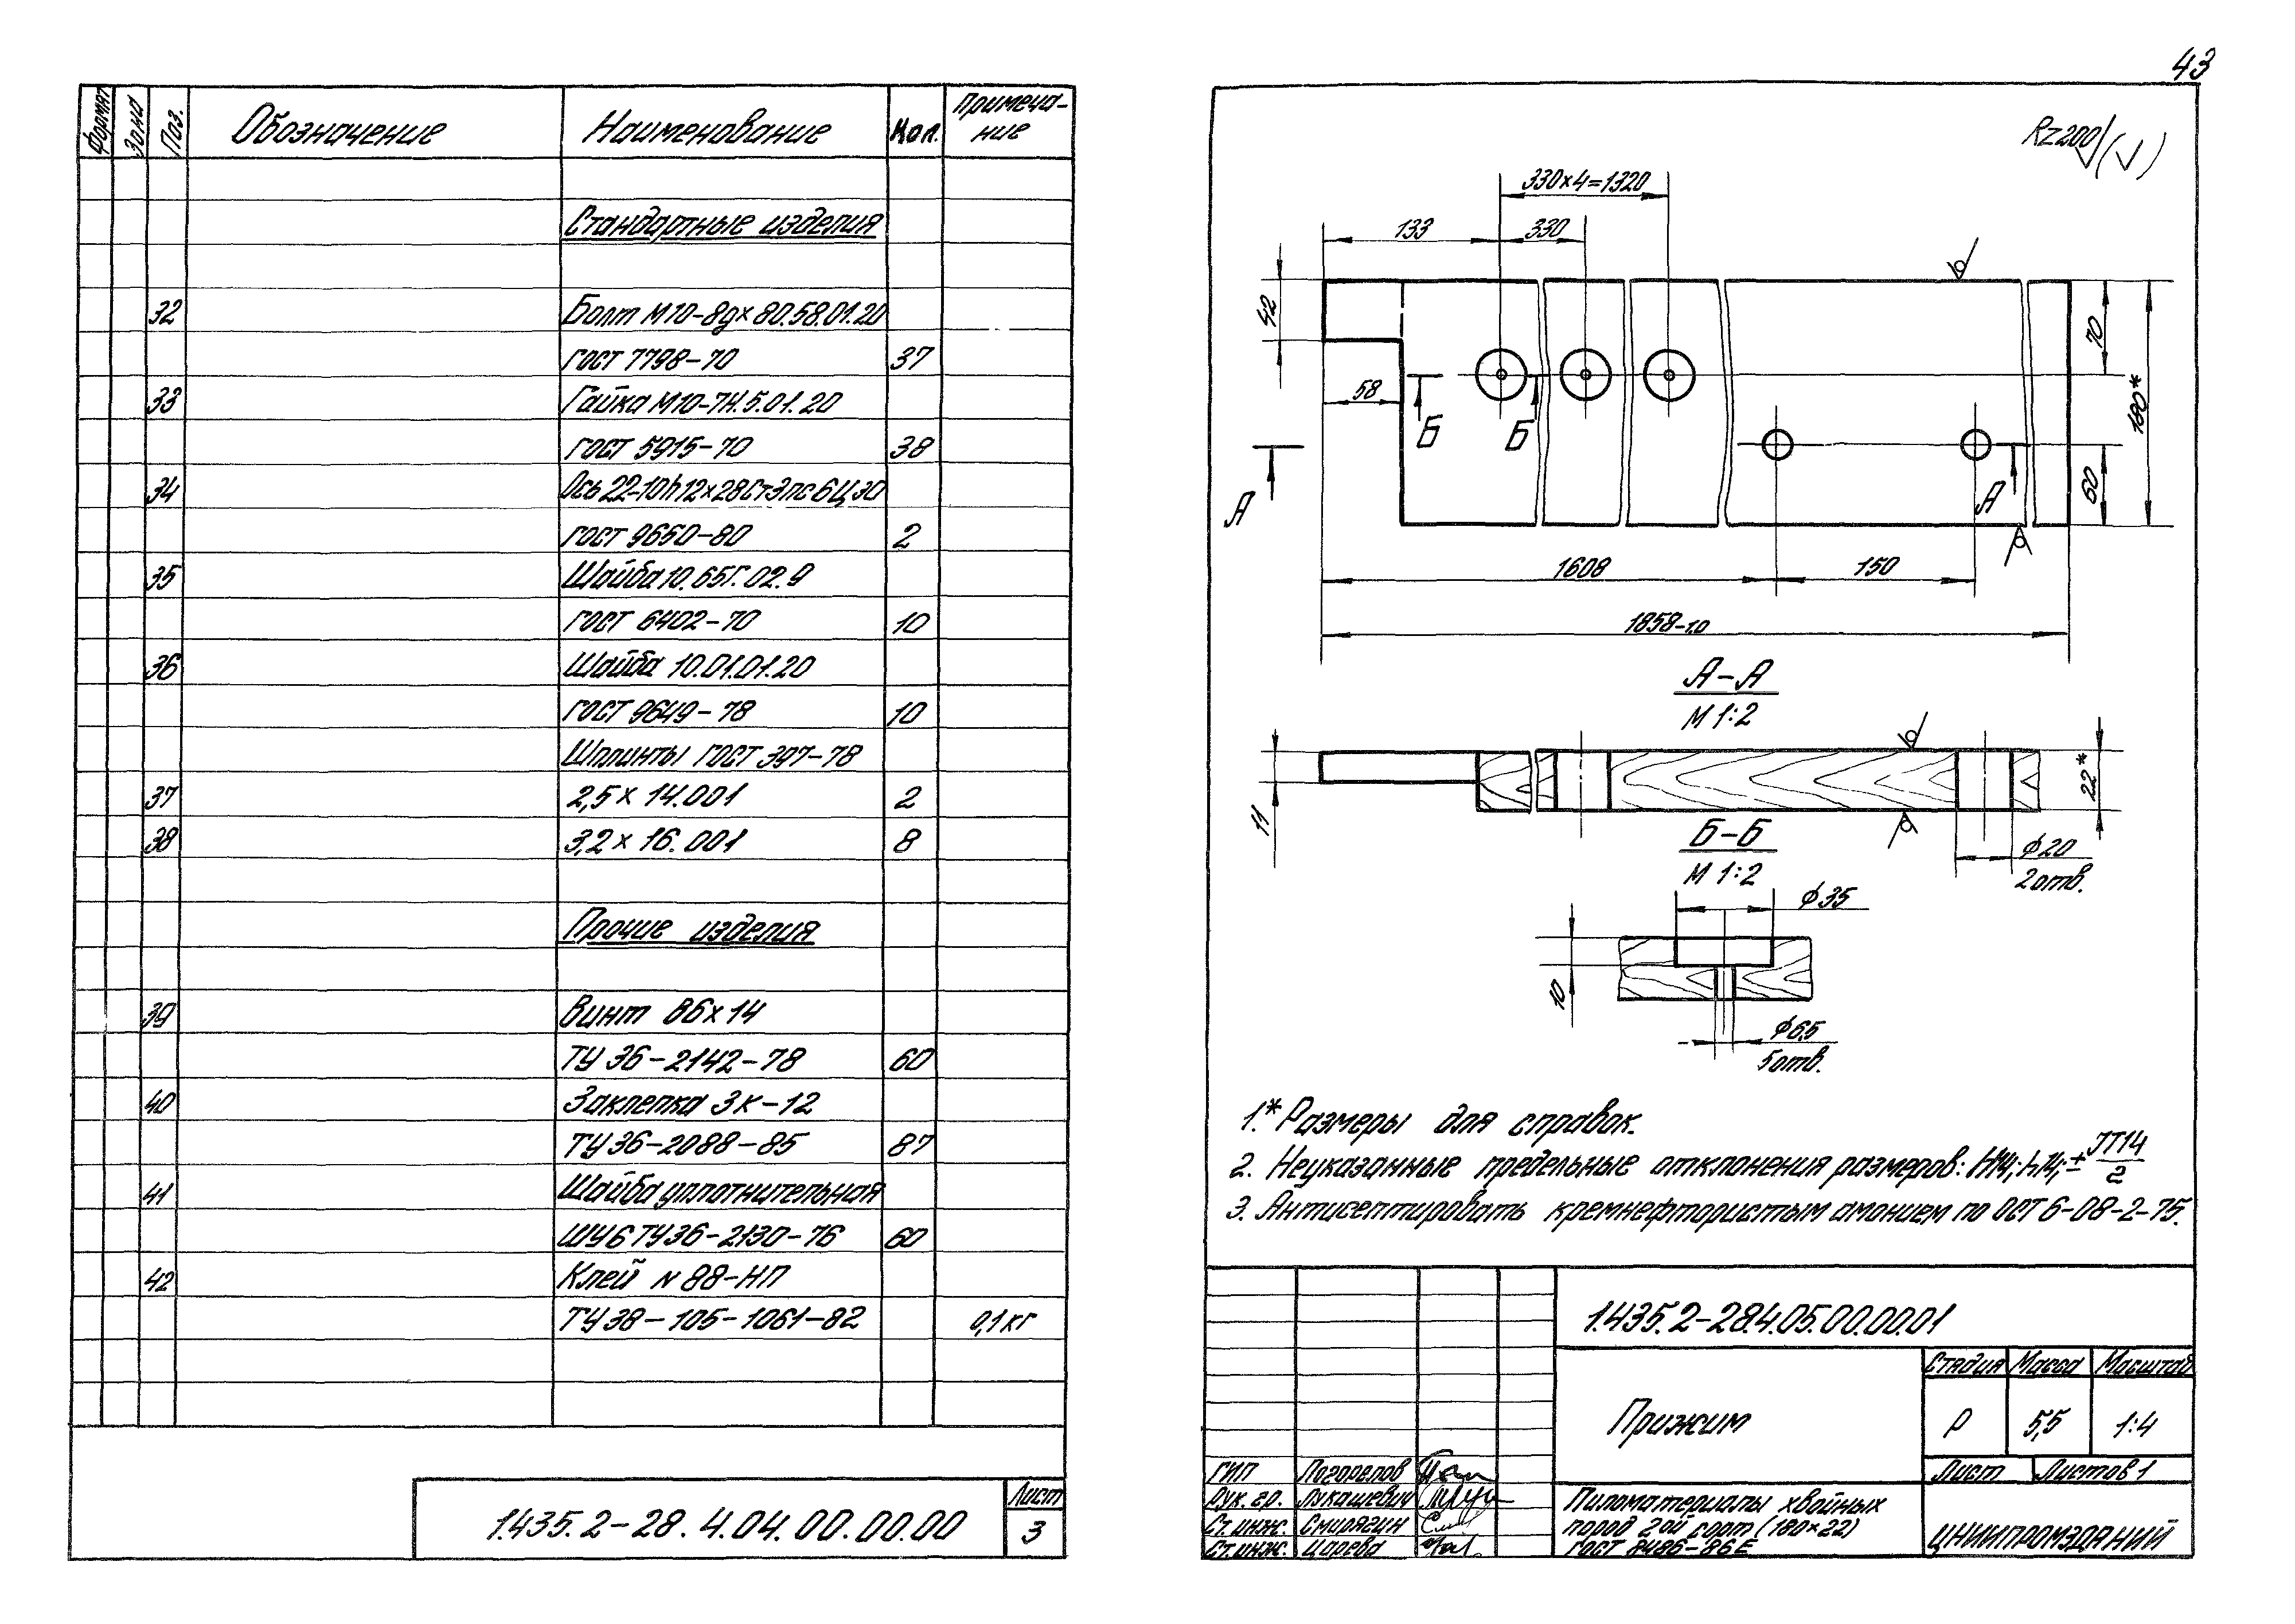 43
Формат Зона Поз. Обозначение Наименование Кол. Примеча-
ние
Стандартные изделия
32 Болт М10-8gх80.58.01.20
ГОСТ 7798-70 37
33 Гайка М10-7Н.5.01.20
ГОСТ 5915-70 38
34 Ось 22-10h12х28Ст3пс6Ц30
ГОСТ 9650-80 2
35 Шайба 10.65Г.02.9
ГОСТ 6402-70 10
36 Шайба 10.01.01.20
ГОСТ 9649-78 10
Шплинты ГОСТ 397-78
37 2,5х14.001 2
38 3,2х16.001 8
Прочие изделия
39 Винт В6х14
ТУ 36-2142-78 60
40 Заклепка ЗК-12
ТУ 36-2088-85 87
41 Шайба уплотнительная
ШУ6 ТУ36-2130-76 60
42 Клей N 88-НП
ТУ 38-105-1061-82 0,1кг
1.435.2-28.4.04.00.00.00
Лист
3
Rz200 (√)
330х4=1320
133 330
42
70
180*
58
Б Б
А А
60
1608 150
1858-1,0
А-А
М 1:2
11
22*
Б-Б
М 1:2
ϕ20
2отв.
ϕ35
10
ϕ6,5
5отв.
1.* Размеры для справок.
2. Неуказанные предельные отклонения размеров: Н14; h14; ± JT14/2
3. Антисептировать кремнефтористым амонием по ОСТ 6-08-2-75.
1.435.2-28.4.05.00.00.01
Прижим
Стадия Масса Масштаб
Р 5,5 1:4
Лист Листов 1
ГИП Погорелов
Рук. гр. Лукашевич
Ст. инж. Смирягин
Ст. инж. Царева
Пиломатериалы хвойных
пород 2ой сорт (180х22)
ГОСТ 8486-86Е
ЦНИИПРОМЗДАНИЙ